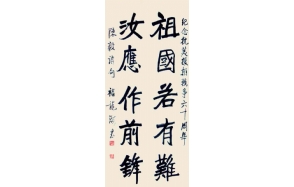 紀念抗美援朝战争六十周年
祖國若有難
汝應作前鋒
陳毅詩句